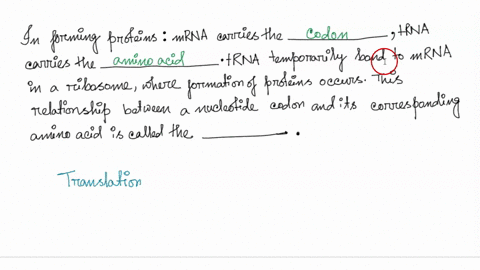 In forming proteins : mRNA carries the codon, tRNA
carries the amino acid. tRNA temporarily bond to mRNA
in a ribosome, where formation of proteins occurs. This
relationship between a nucleotide codon and its corresponding
amino acid is called the ____________.
Translation